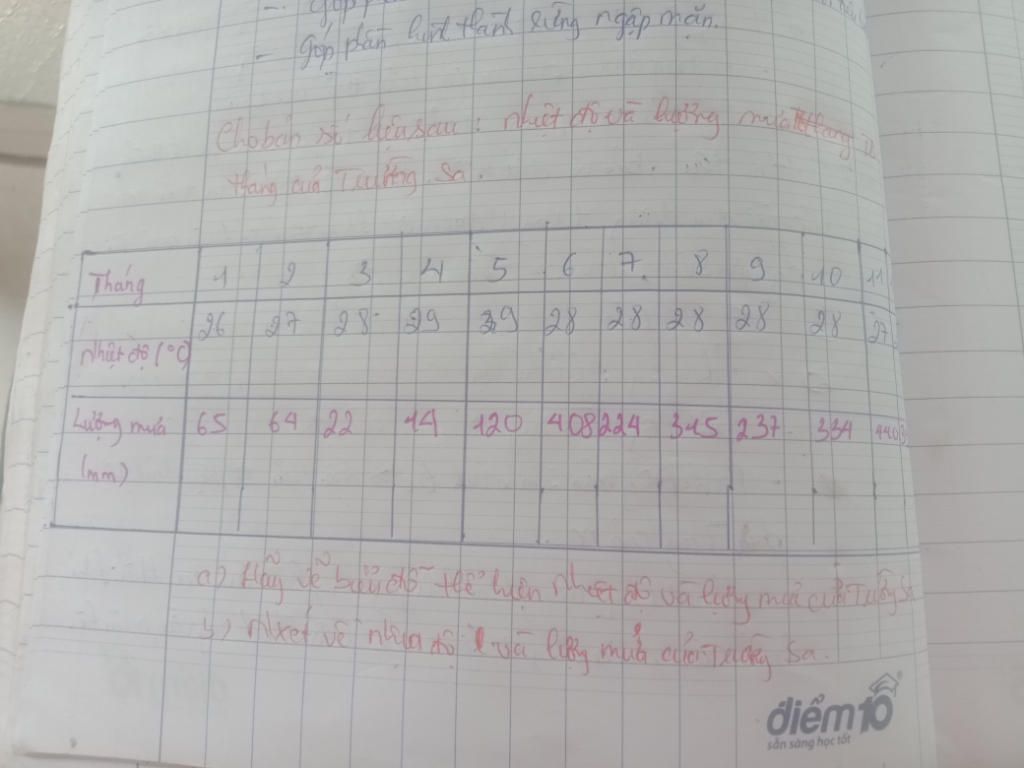 - Góp
- Góp phần hình thành rừng ngập mặn.
Cho bản số liệu sau: nhiệt độ và lượng mưa
tháng của Trường Sa.
Tháng 1 2 3 4 5 6 7 8 9 10 11
Nhiệt độ (°C) 26 27 28 29 29 28 28 28 28 28 27
Lượng mưa (mm) 65 64 22 14 120 408 224 315 237 334 440
a) Hãy vẽ biểu đồ thể hiện nhiệt độ và lượng mưa của Trường Sa
b) Nhxét về nhiệt độ và lượng mưa của Trường Sa.
điểm10
sẵn sàng học tốt